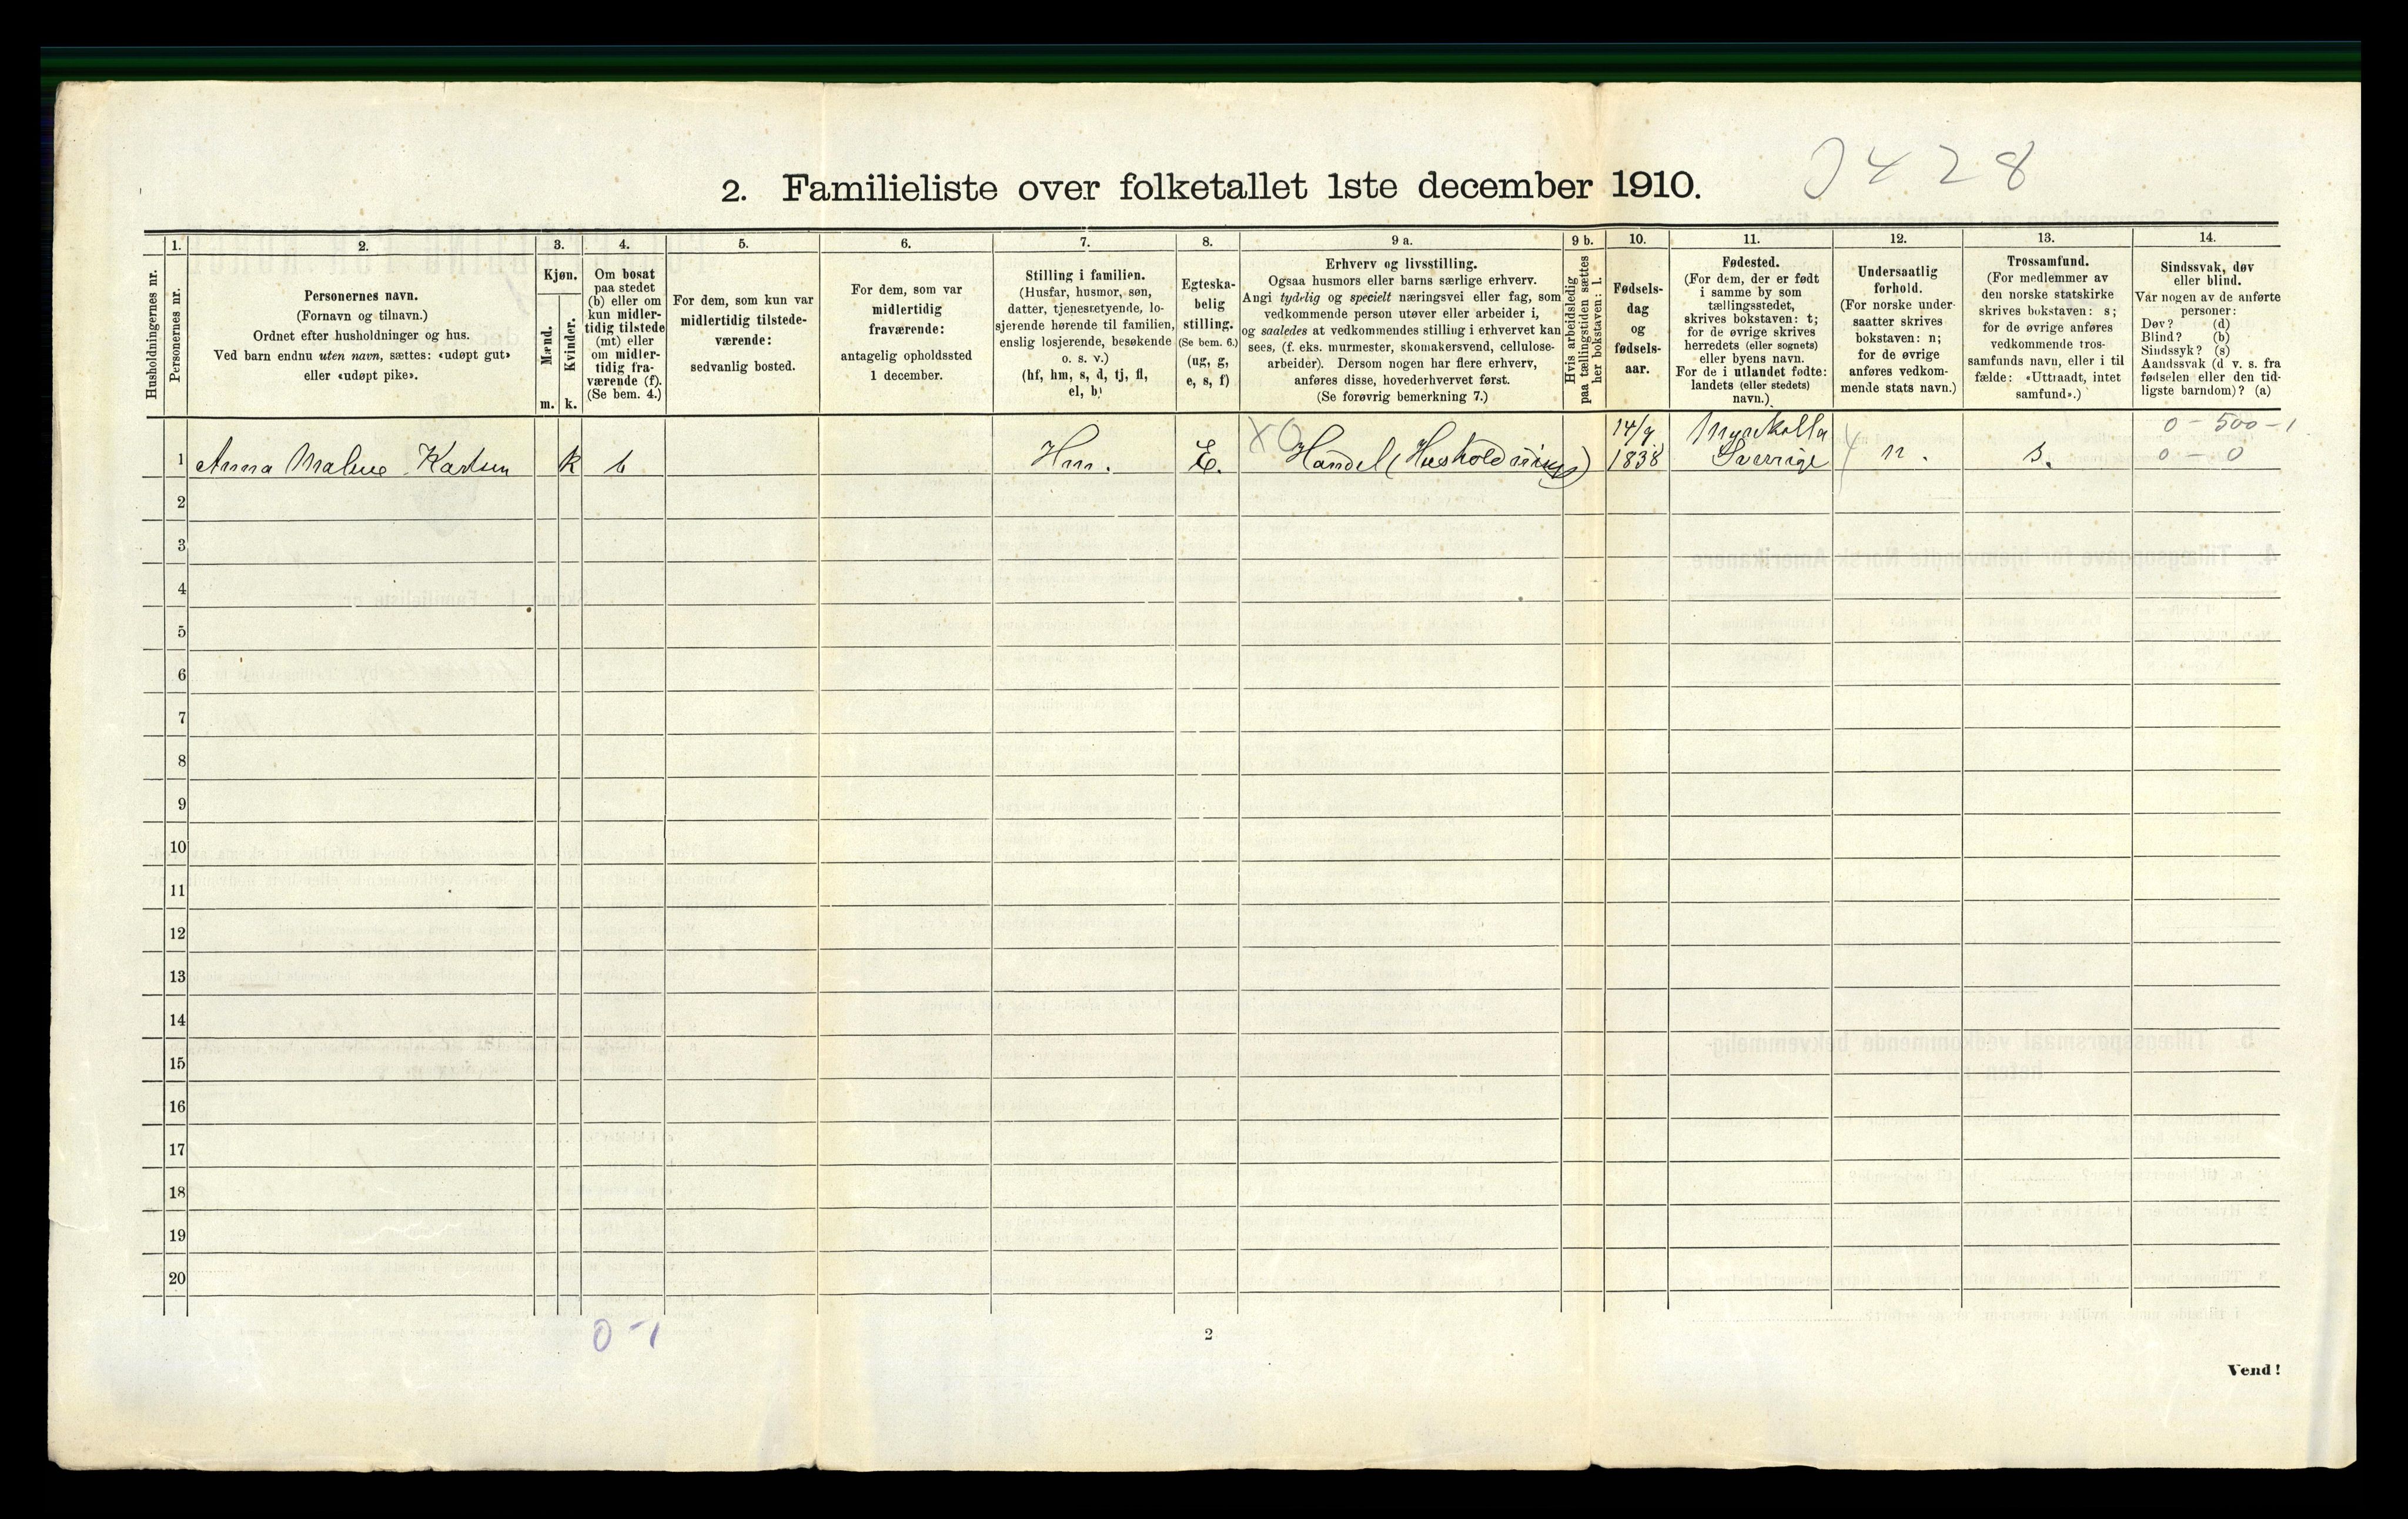 2. Familieliste over folketallet 1ste december 1910.
3428
Husholdningernes nr.
1.
Personernes nr.
2.
Personernes navn.
(Fornavn og tilnavn.)
Ordnet efter husholdninger og hus.
Ved barn endnu uten navn, sættes: «udøpt gut»
eller «udøpt pike».
3.
Kjøn.
Mænd.
Kvinder.
m. k.
4.
Om bosat
paa stedet
(b) eller om
kun midler-
tidig tilstede
(mt) eller
om midler-
tidig fra-
værende (f).
(Se bem. 4.)
5.
For dem, som kun var
midlertidig tilstede-
værende:
sedvanlig bosted.
6.
For dem, som var
midlertidig
fraværende:
antagelig opholdssted
1 december.
7.
Stilling i familien.
(Husfar, husmor, søn,
datter, tjenestetyende, lo-
sjerende hørende til familien,
enslig losjerende, besøkende
o. s. v.)
(hf, hm, s, d, tj, fl,
el, b)
8.
Egteska-
belig
stilling.
(Se bem. 6.)
(ug, g,
e, s, f)
9 a.
Erhverv og livsstilling.
Ogsaa husmors eller barns særlige erhverv.
Angi tydelig og specielt næringsvei eller fag, som
vedkommende person utøver eller arbeider i,
og saaledes at vedkommendes stilling i erhvervet kan
sees, (f. eks. murmester, skomakersvend, cellulose-
arbeider). Dersom nogen har flere erhverv,
anføres disse, hovederhvervet først.
(Se forøvrig bemerkning 7.)
9 b.
Hvis arbeidsledig
paa tællingstiden sættes
her bokstaven: l.
10.
Fødsels-
dag
og
fødsels-
aar.
11.
Fødested.
(For dem, der er født
i samme by som
tællingsstedet,
skrives bokstaven: t;
for de øvrige skrives
herredets (eller sognets)
eller byens navn.
For de i utlandet fødte:
landets (eller stedets)
navn.)
12.
Undersaatlig
forhold.
(For norske under-
saatter skrives
bokstaven: n;
for de øvrige
anføres vedkom-
mende stats navn.)
13.
Trossamfund.
(For medlemmer av
den norske statskirke
skrives bokstaven: s;
for de øvrige anføres
vedkommende tros-
samfunds navn, eller i til
fælde: «Uttraadt, intet
samfund».)
14.
Sindssvak, døv
eller blind.
Var nogen av de anførte
personer:
Døv? (d)
Blind? (b)
Sindssyk? (s)
Aandssvak (d. v. s. fra
fødselen eller den tid-
ligste barndom)? (a)
0 - 500 - 1
14/9
1 Anna Malene Karlsen K b Hm. E. X0 Handel 1838 Sverrige n. s. 0 - 0
2
3
4
5
6
7
8
9
10
11
12
13
14
15
16
17
18
19
20
0-1
2
Vend!